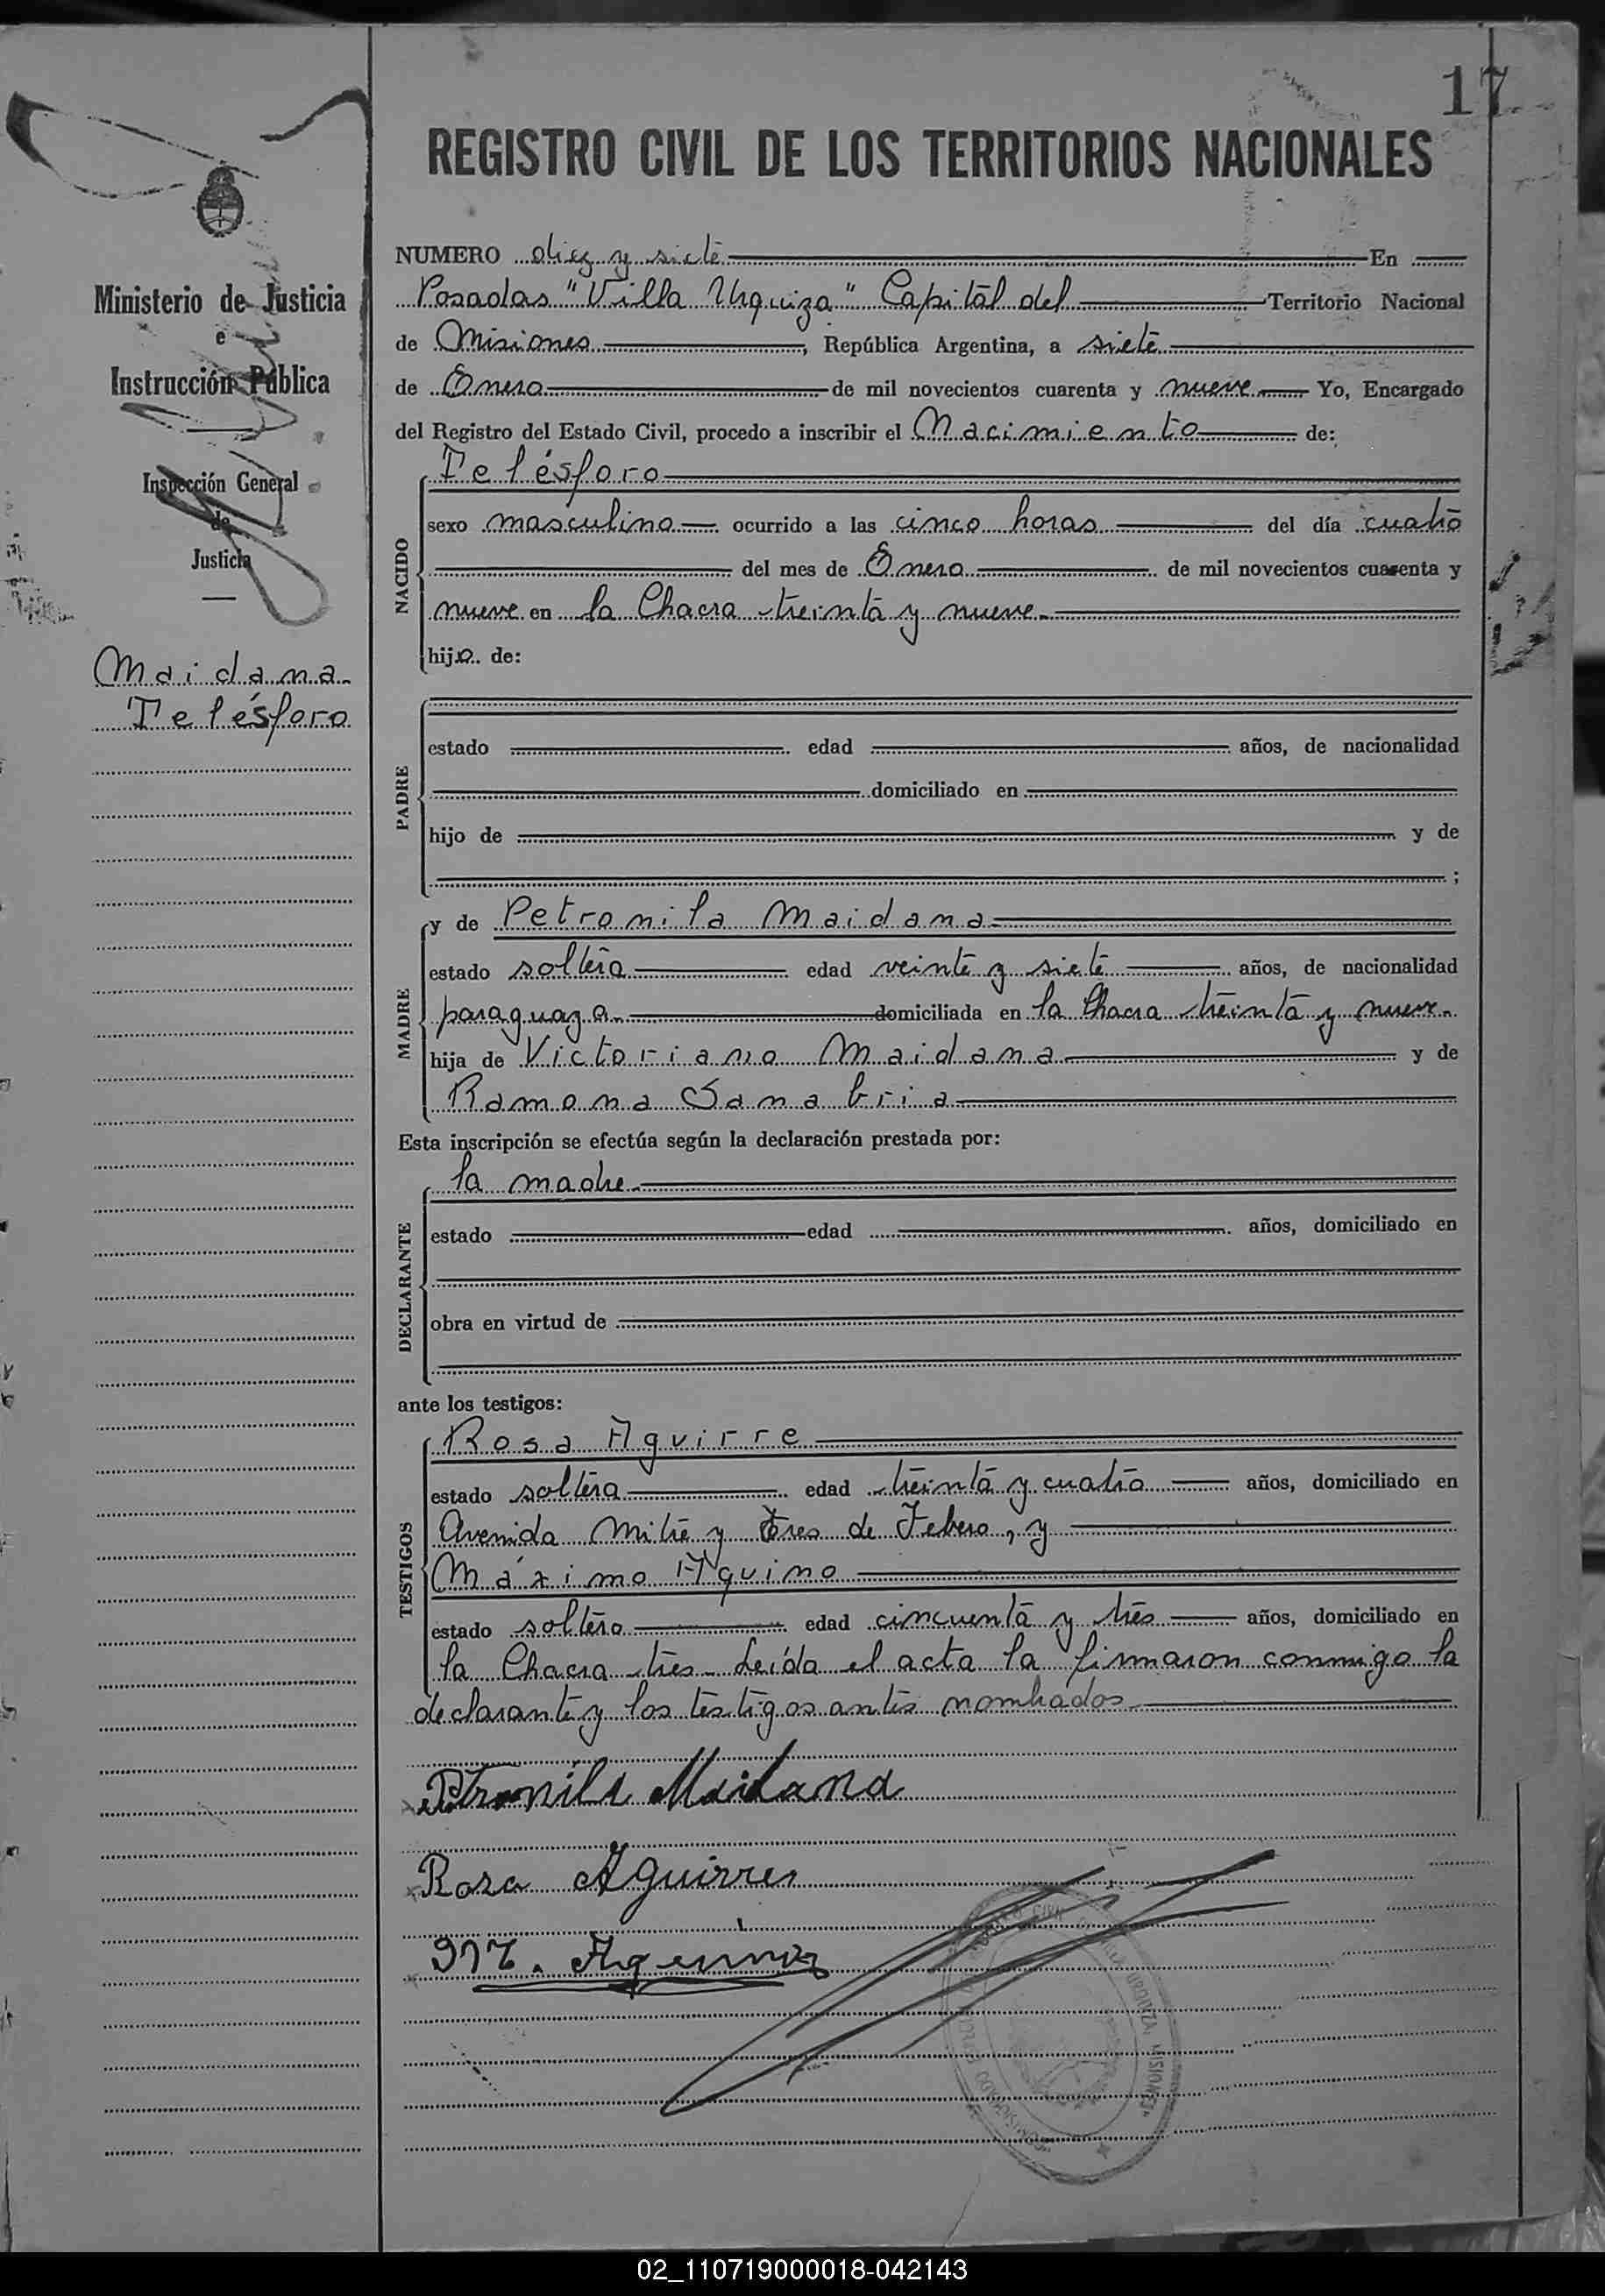 17
REGISTRO CIVIL DE LOS TERRITORIOS NACIONALES
Ministerio de Justicia
e
Instrucción Pública
Inspección General
de
Justicia
Maidana
Telésforo
NUMERO diez y siete En
Posadas "Villa Urquiza" Capital del Territorio Nacional
de Misiones, República Argentina, a siete
de Enero de mil novecientos cuarenta y nueve Yo, Encargado
del Registro del Estado Civil, procedo a inscribir el Nacimiento de:
NACIDO
Telésforo
sexo masculino ocurrido a las cinco horas del día cuatro
del mes de Enero de mil novecientos cuarenta y
nueve en la Chacra treinta y nueve.
hijo de:
PADRE
estado edad años, de nacionalidad
domiciliado en
hijo de y de
;
MADRE
y de Petronila Maidana
estado soltera edad veinte y siete años, de nacionalidad
paraguaya domiciliada en la Chacra treinta y nueve.
hija de Victoriano Maidana y de
Ramona Sanabria
Esta inscripción se efectúa según la declaración prestada por:
DECLARANTE
la madre
estado edad años, domiciliado en
obra en virtud de
ante los testigos:
TESTIGOS
Rosa Aguirre
estado soltera edad treinta y cuatro años, domiciliado en
Avenida Mitre y Tres de Febrero, y
Máximo Aquino
estado soltero edad cincuenta y tres años, domiciliado en
la Chacra tres. Leída el acta la firmaron conmigo la
declarante y los testigos antes nombrados
Petronila Maidana
Rosa Aguirre
M. Aquino
VILLA URQUIZA, MISIONES
02_110719000018-042143